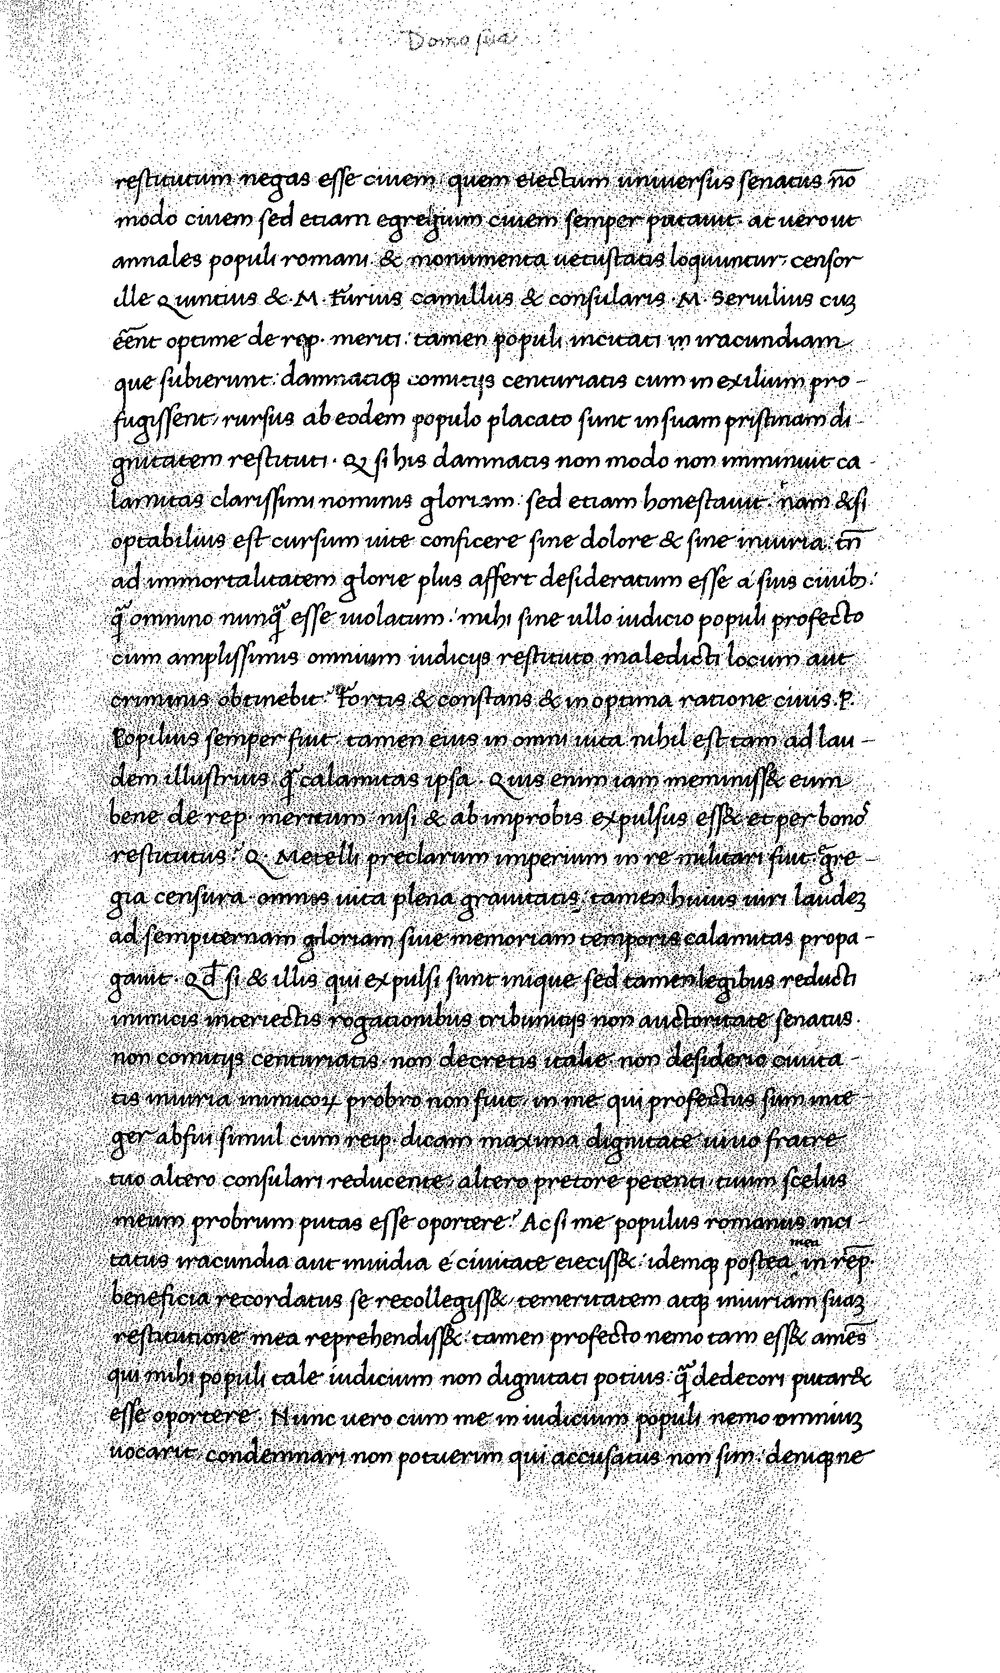 Domo sua
restitutum negas esse ciuem quem eiectum uniuersus senatus nō
modo ciuem sed etiam egregium ciuem semper putauit. at uero ut
annales populi romani & monumenta uetustatis loquuntur, censor
ille Quintius & .M. Furius camillus & consularis .M. Seruilius cuꝫ
eēnt optime de rep. meriti: tamen populi incitati in iracundiam
que subierunt: damnatiqꝫ comitijs centuriatis cum in exilium pro -
fugissent, rursus ab eodem populo placato sunt in suam pristinam di -
gnitatem restituti. Qꝫ si his damnatis non modo non imminuit ca -
lamitas clarissimi nominis gloriam: sed etiam honestauit. nam & si
optabilius est cursum uite conficere sine dolore & sine iniuria: tn̄
ad immortalitatem glorie plus affert desideratum esse á suis ciuibꝫ:
q̃ omnino nunq̃ esse uiolatum: mihi sine ullo iudicio populi profecto
cum amplissimis omnium iudicijs restituto maledicti locum aut
criminis obtinebit? Fortis & constans & in optima ratione ciuis .P.
Popilius semper fuit. tamen eius in omni uita nihil est tam ad lau -
dem illustrius q̃ calamitas ipsa. Quis enim iam meminiss& eum
bene de rep. meritum nisi & ab improbis expulsus ess& et per bonoˢ
restitutus? Q. Metelli preclarum imperium in re militari fuit. egre -
gia censura. omnis uita plena grauitatis: tamen huius uiri laudeꝫ
ad sempiternam gloriam siue memoriam temporis calamitas propa -
gauit. Qd̄ si & illis qui expulsi sunt inique sed tamen legibus reducti
inimicis interiectis rogationibus tribunitijs non auctoritate senatus.
non comitijs centuriatis. non decretis italie non desiderio ciuita -
tis iniuria inimicoꝝ probro non fuit, in me qui profectus sum inte -
ger abfui simul cum reip. dicam maxima dignitate uiuo fratre
tuo altero consulari reducente, altero pretore petenti, tuum scelus
meum probrum putas esse oportere? Ac si me populus romanus inci -
tatus iracundia aut inuidia é ciuitate eieciss&: idemqꝫ postea in rēp.
mea
beneficia recordatus se recollegiss&, temeritatem atqꝫ iniuriam suaꝫ
restitutione mea reprehendiss&: tamen profecto nemo tam ess& amēs
qui mihi populi tale iudicium non dignitati potius q̃ dedecori putar&
esse oportere. Nunc uero cum me in iudicium populi nemo omniuꝫ
uocarit, condemnari non potuerim qui accusatus non sim: deniqꝫ ne